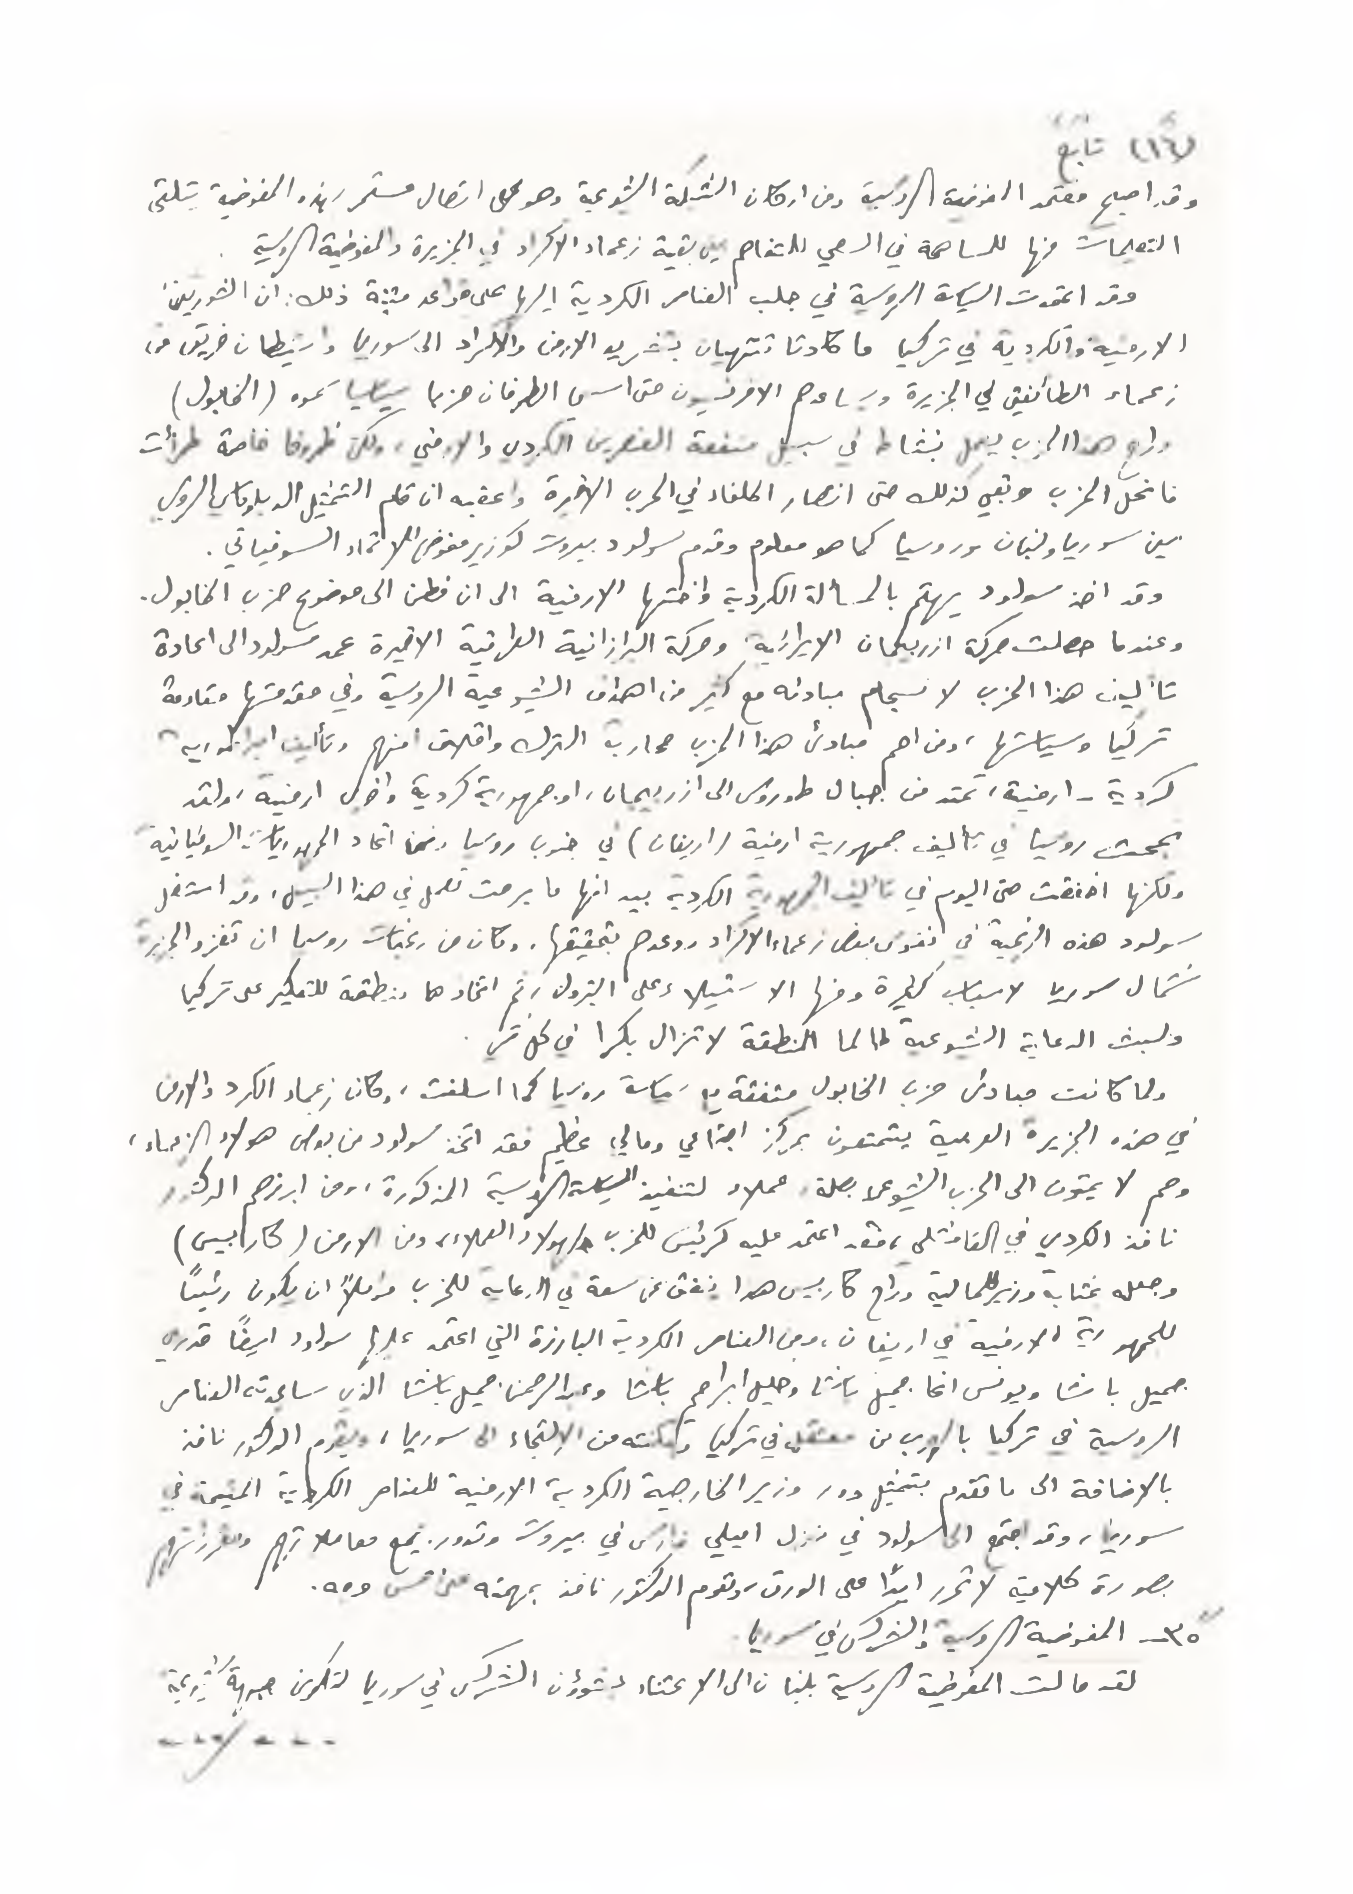 (١٦) تابع
وقد اصبح معتمد المفوضية الروسية ومن اركان الشبكة الشيوعية وهو على اتصال مستمر بهذه المفوضية يتلقى
التعليمات منها للمساهمة في السعي للتفاهم بين بقية زعماء الاكراد في الجزيرة والمفوضية الروسية .
وقد اعتمدت السياسة الروسية في جلب العناصر الكردية اليها على قواعد متينة ذلك : ان الثورتين
الارمنية والكردية في تركيا ما كادتا تنتهيان بتشريد الارمن والاكراد الى سوريا واستيطان فريق من
زعماء الطائفتين في الجزيرة وساعدهم الافرنسيون حتى اسس الطرفان حزبا سياسيا سموه (الخابول)
وراح هذا الحزب يعمل بنشاط في سبيل منفعة العنصرين الكردي والارمني ، ولكن ظروفا خاصة طرأت
فانحل الحزب وبقي كذلك حتى انتصار الحلفاء في الحرب الاخيرة واعقبه ان قام التمثيل الدبلوماسي الروسي
بين سوريا ولبنان وروسيا كما هو معلوم وقدم سولود بيروت كوزير مفوض للاتحاد السوفياتي .
وقد اخذ سولود يهتم بالمسألة الكردية واختها الارمنية الى ان فطن الى موضوع حزب الخابول .
وعندما حصلت حركة ازربيجان الايرانية وحركة البرازانية العراقية الاخيرة عمد سولود الى اعادة
تأليف هذا الحزب لانسجام مبادئه مع كثير من اهداف الشيوعية الروسية وفي مقدمتها مقاومة
تركيا وسياستها ، ومن اهم مبادئ هذا الحزب محاربة الترك واقلاق امنهم وتأليف امبراطورية
كردية - ارمنية ، تمتد من جبال طوروس الى ازربيجان ، او جمهورية كردية واخرى ارمنية ، ولقد
نجحت روسيا في تأليف جمهورية ارمنية (اريفان) في جنوب روسيا ضمن اتحاد الجمهوريات السوفياتية
ولكنها اخفقت حتى اليوم في تأليف الجمهورية الكردية بيد انها ما برحت تعمل في هذا السبيل ، وقد استغل
سولود هذه الرغبة في نفوس بعض زعماء الاكراد ووعدهم بتحقيقها . وكان من رغبات روسيا ان تغزو الجزيرة
شمال سوريا لاسباب كثيرة ومنها الاستيلاء على البترول ، ثم اتخاذها منطقة للتعكير على تركيا
ولبث الدعاية الشيوعية طالما المنطقة لا تزال بكرا في كل شي .
ولما كانت مبادئ حزب الخابول متفقة و سياسة روسيا كما اسلفت ، وكان زعماء الكرد والارمن
في هذه الجزيرة العربية يتمتعون بمركز اجتماعي ومالي عظيم فقد اتخذ سولود من بعض هولاء الزعماء ،
وهم لا يمتون الى الحزب الشيوعي بصلة ، عملاء لتنفيذ السياسة الروسية المذكورة ، ومن ابرزهم الدكتور
نافذ الكردي في القامشلي ، فقد اعتمد عليه كرئيس للحزب ولهولاء العملاء ، ومن الارمن (كارابيس)
وجعله بمثابة وزير للمالية وراح كاربيس هذا ينفق عن سعة في الدعاية للحزب مؤملاً ان يكون رئيسًا
للجمهورية الارمنية في اريفان ، ومن العناصر الكردية البارزة التي اعتمد عليها سولود ايضًا قدري
جميل باشا ويونس اغا جميل باشا وخليل ابراهيم باشا وعبدالرحمن جميل باشا الذي ساعدته العناصر
الروسية في تركيا بالهرب من معتقل في تركيا ومكنته من الالتجاء الى سوريا ، ويقوم الدكتور نافذ
بالاضافة الى ما تقدم بتمثيل دور وزير الخارجية الكردية الارمنية للعناصر الكردية المقيمة في
سوريا ، وقد اجتمع الى سولود في منزل اميلي فارس في بيروت وتدور جميع معاملاتهم
بصورة كلامية لا تحرر ابدًا على الورق ، ويقوم الدكتور نافذ بمهمته على احسن وجه .
٣٥ - المفوضية الروسية والشركس في سوريا
لقد مالت المفوضية الروسية بلبنان الى الاعتناء بشؤون الشركس في سوريا لتكوين جبهة شيوعية